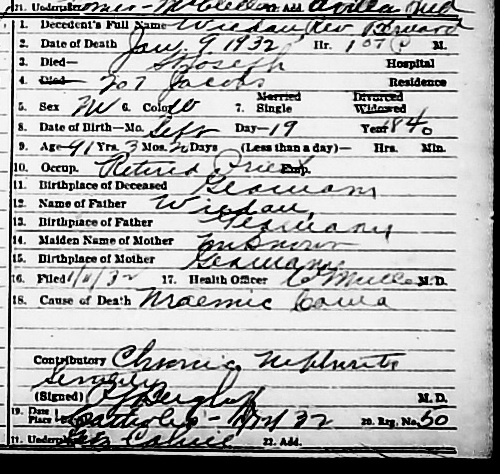 21. Undertaker 22. Add. Avilla Ind
1. Decedent's Full Name Wiedau Rev Bernard
2. Date of Death Jan. 9 1932 Hr. P M.
3. Died— St Joseph Hospital
4. Died— 207 Jacobs Residence
5. Sex M 6. Color W 7. Married Single Divorced Widowed
8. Date of Birth—Mo. Sept Day—19 Year 1840
9. Age—91 Yrs. 3 Mos. 20 Days (Less than a day)— Hrs. Min.
10. Occup. Retired Priest Emp.
11. Birthplace of Deceased Germany
12. Name of Father Wiedau,
13. Birthplace of Father Germany
14. Maiden Name of Mother Unknown
15. Birthplace of Mother Germany
16. Filed 1/11/32 17. Health Officer M.D.
18. Cause of Death Uraemic Coma
Contributory Chronic Nephritis
Senility
(Signed) M.D.
19. Date Place Catholic - 1/12/32 20. Reg. No. 50
21. Undertaker 22. Add.